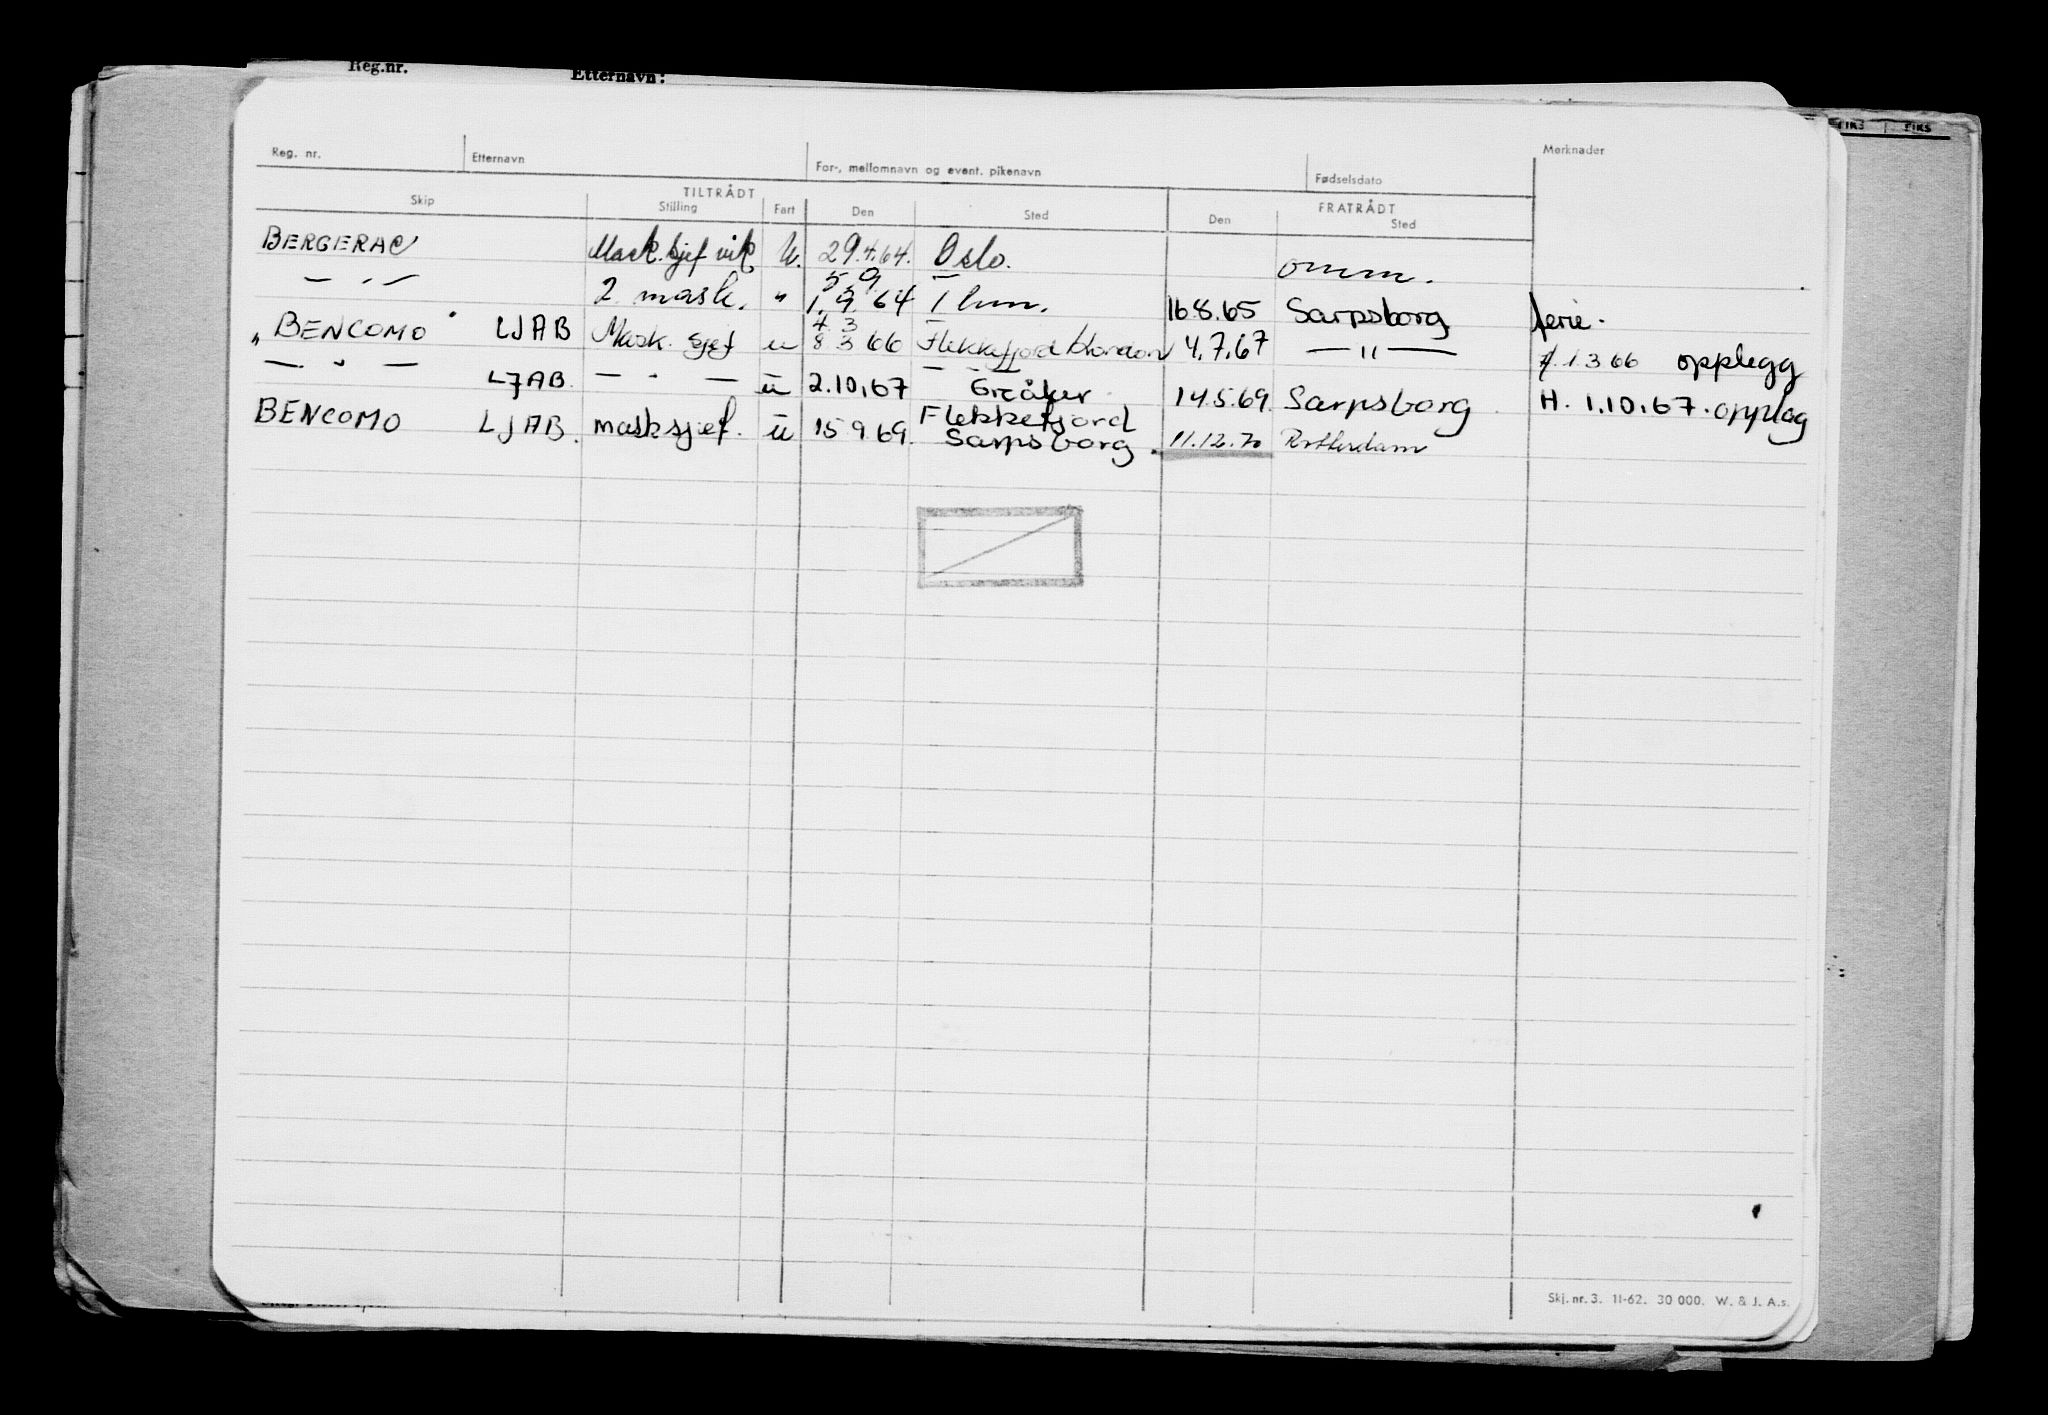 Reg.nr. Etternavn:
FIKS FIKS
Reg. nr. Etternavn For-, mellomnavn og event. pikenavn Fødselsdato Merknader
TILTRÅDT FRATRÅDT
Skip Stilling Fart Den Sted Den Sted
BERGERAC Mask.sjef vik u. 29.4.64. Oslo. omm.
— " — 2 mask. " 5 9 1.9.64 16.8.65 Sarpsborg ferie.
"BENCOMO" LJAB Mask. sjef u 4 3 8 3 66 Flekkefjord London 4.7.67 — " — 1 3 66 opplegg
— " — LJAB — " — u 2.10.67 Greåker 14.5.69. Sarpsborg H. 1.10.67. opplag
BENCOMO LJAB. masksjef. u 15 9 69. Flekkefjord
Sarpsborg. 11.12.70 Rotterdam
Skj. nr. 3. 11-62. 30 000. W. & J. A.s.